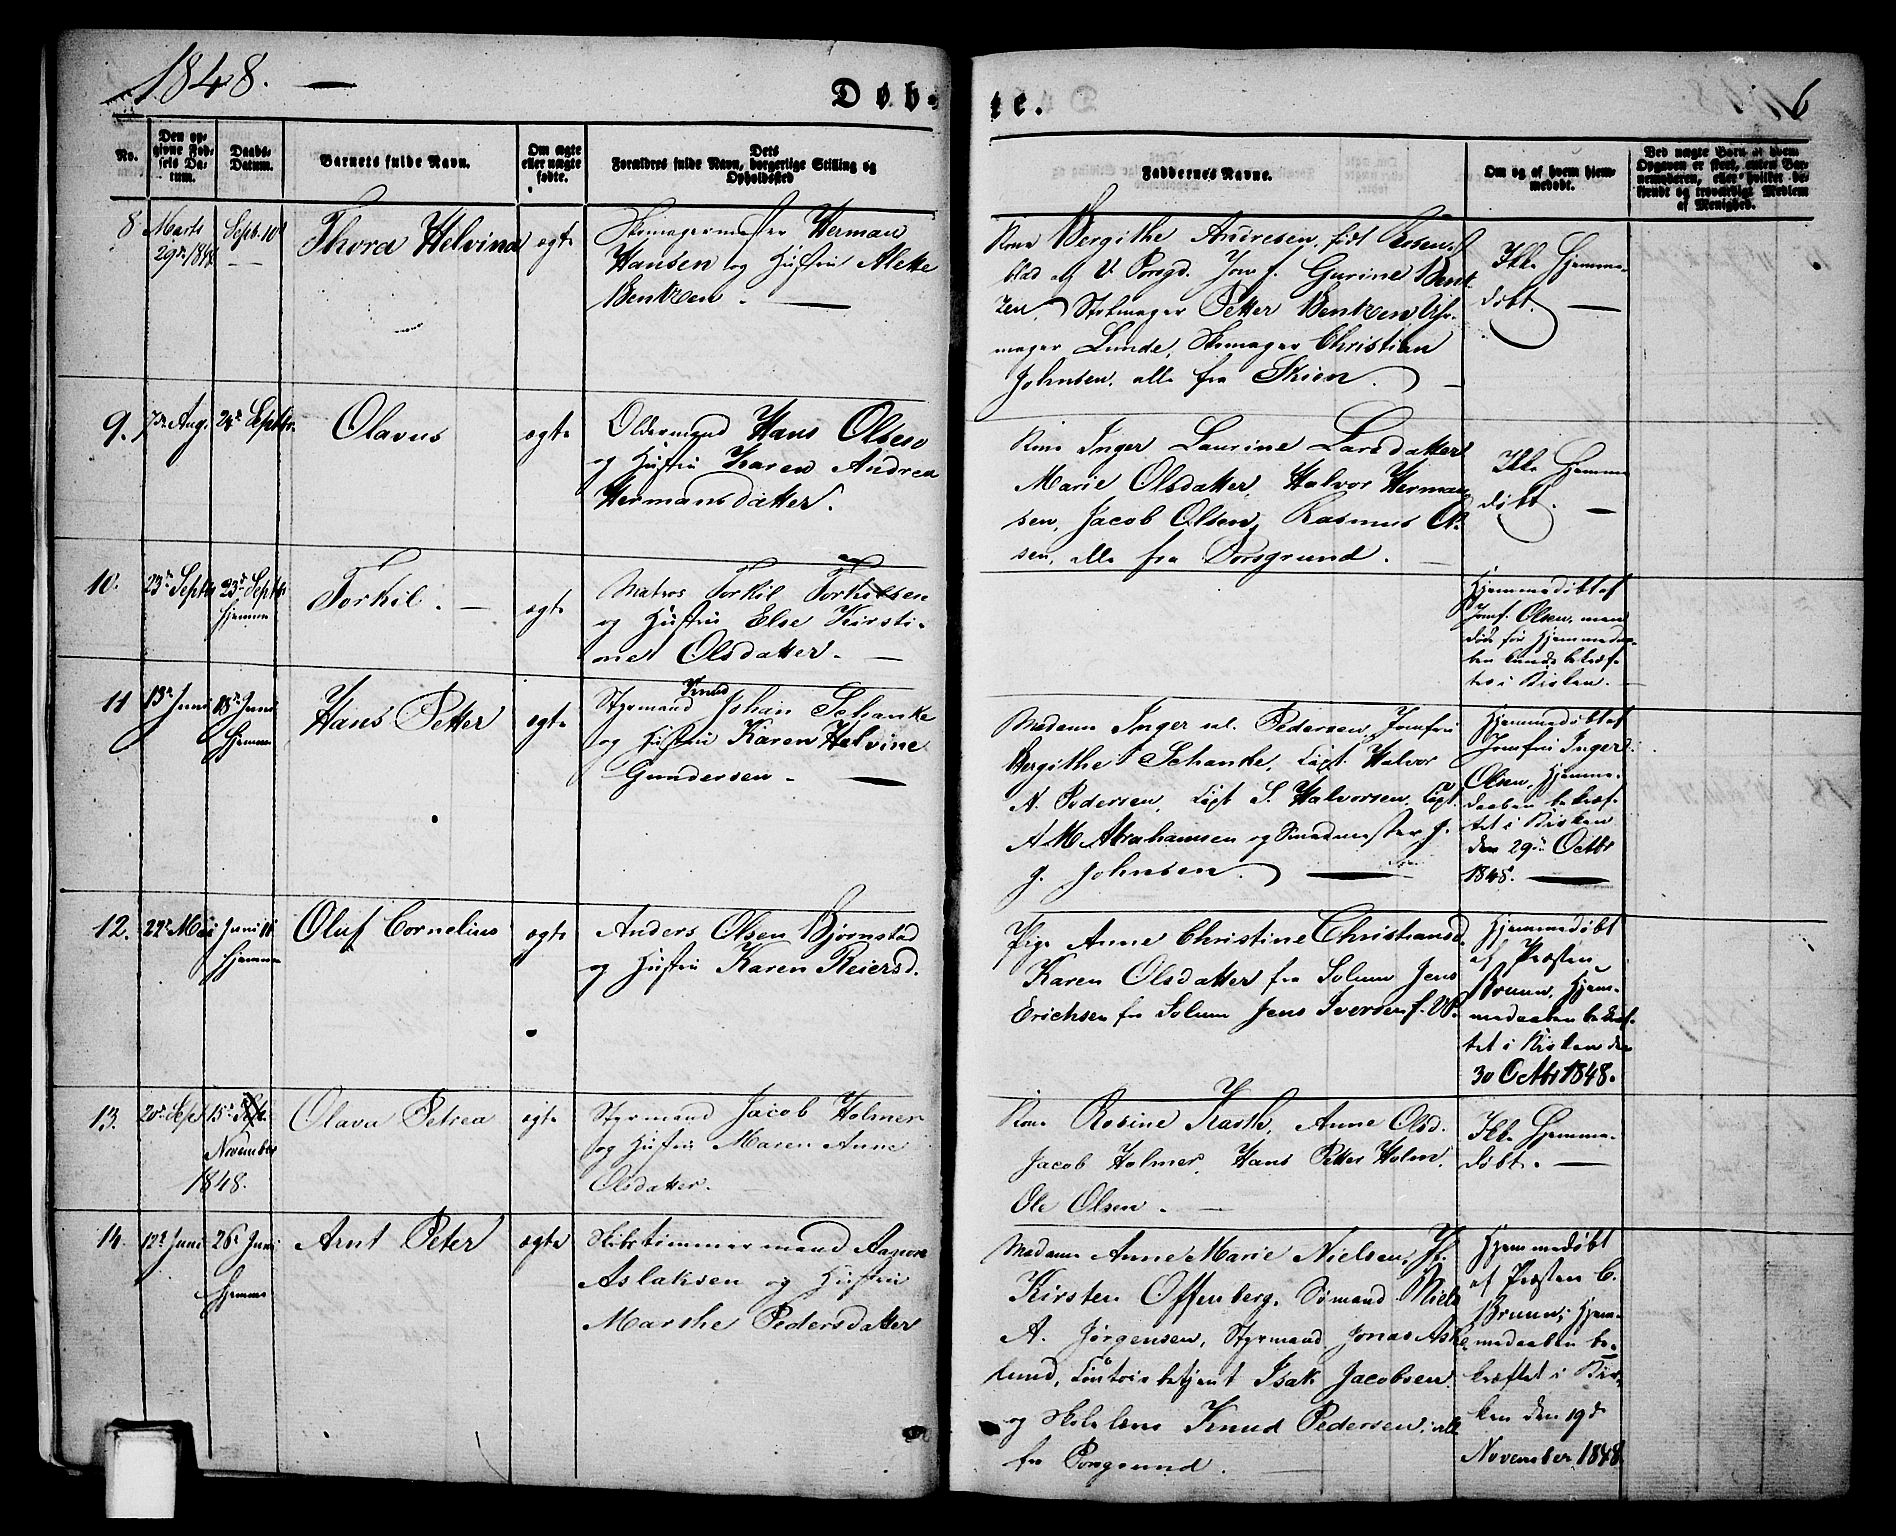 1848. —
Døb-
te.
6
No.
Den op-
givne Fød-
sels Da-
tum.
Daabs-
Datum.
Barnets fulde Navn.
Om ægte
eller uægte
fødte.
Dets
Forældres fulde Navn, borgerlige Stilling og
Opholdssted
Faddernes Navne.
Om og af hvem hjem-
medøbt.
Ved uægte Børn af hvem
Opgaven er skeet, enten Bar-
nemoderen, eller hvilket be-
kjendt og troværdigt Medlem
af Menighed.
8
Marts
29de 1848
Septb. 10
Thora Helvina
ægte
Skomagermester Herman
Hansen og Hustru Aleke
Bentzen. —
Kone Bergithe Andresen, født Rosen-
blad og V. Porsgd. Jomf. Gurine Bent
zen, Stolmager Petter Bentzen Uhr-
mager Lunde, Skomager Christian
Johnsen, alle fra Skien. —
Ikke Hjemme-
døbt. —
9.
7de Aug.
24de Septbr.
Olavus
ægte
Oldermand Hans Olsen
og Hustru Karen Andrea
Hermansdatter.
Kone Inger Laurine Larsdatter
Marie Olsdatter, Halvor Herman
sen, Jacob Olsen, Rasmus Ol-
sen, alle fra Porsgrund. —
Ikke Hjemme
døbt. —
10.
23de Septbr
23de Septbr
hjemme
Torkil. —
ægte
Matros Torkil Torkilsen
og Hustru Else Kirsti-
ne Olsdatter. —
Hjemmedøbt af
Jomf. Olsen, men
døde før Hjemmedaa-
ben kunde bekræf-
tes i Kirken. —
11
13de Juni
18de Juni
Hjemme
Hans Petter
ægte
Knud
Styrmand Johan Schanke
og Hustru Karen Helvine
Gundersen. —
Madame Inger sal. Pedersen, Jomfru
Bergithe Schanke, Capt. Halvor
A. Pedersen, Capt S. Halvorsen, Capt.
A M Abrahamsen og Smedmester J.
J. Johnsen. —
Hjemmedøbt af
Jomfru Inger
Olsen, Hjemme-
daaben bekræf-
tet i Kirken
den 29de Octbr
1848. —
12.
22de Mai
Juni 11
hjemme
Oluf Cornelius
ægte
Anders Olsen Bjørnstad
og Hustru Karen Reiersd.
Pige Anne Christine Christiansd.
Karen Olsdatter fra Solum Jens
Erichsen fra Solum Jens Iversen f. VP.
Hjemmedøbt
af Præsten
Bruun, Hjem-
medaaben bekræf-
tet i Kirken den
30 Octbr 1848.
13.
20de Sept
15de Septbr
November
1848.
Olava Petrea
ægte
Styrmand Jacob Holmer
og Hustru Maren Anne
Olsdatter. —
Kone Rosine Karth, Anne Olsd.
Jacob Holmer, Hans Petter Holm,
Ole Olsen. —
Ikke Hjemme-
døbt. —
14.
12te Juni
26de Juni
Hjemme
Arnt Peter
ægte
Skibstømmermand Aanon
Aslaksen og Hustru
Marthe Pedersdatter
Madame Anne Marie Nielsen, Jf.
Kirsten Offenberg, Sømand Niels
A. Jørgensen, Styrmand Jonas Aske
lund, Contoirbetjent Isak Jacobsen
og Knud Pedersen, alle
fra Porsgrund. —
Hjemmedøbt
af Præsten C.
Bruun, Hjem-
medaaben be-
kræftet i Kir-
ken den 19de
November 1848.